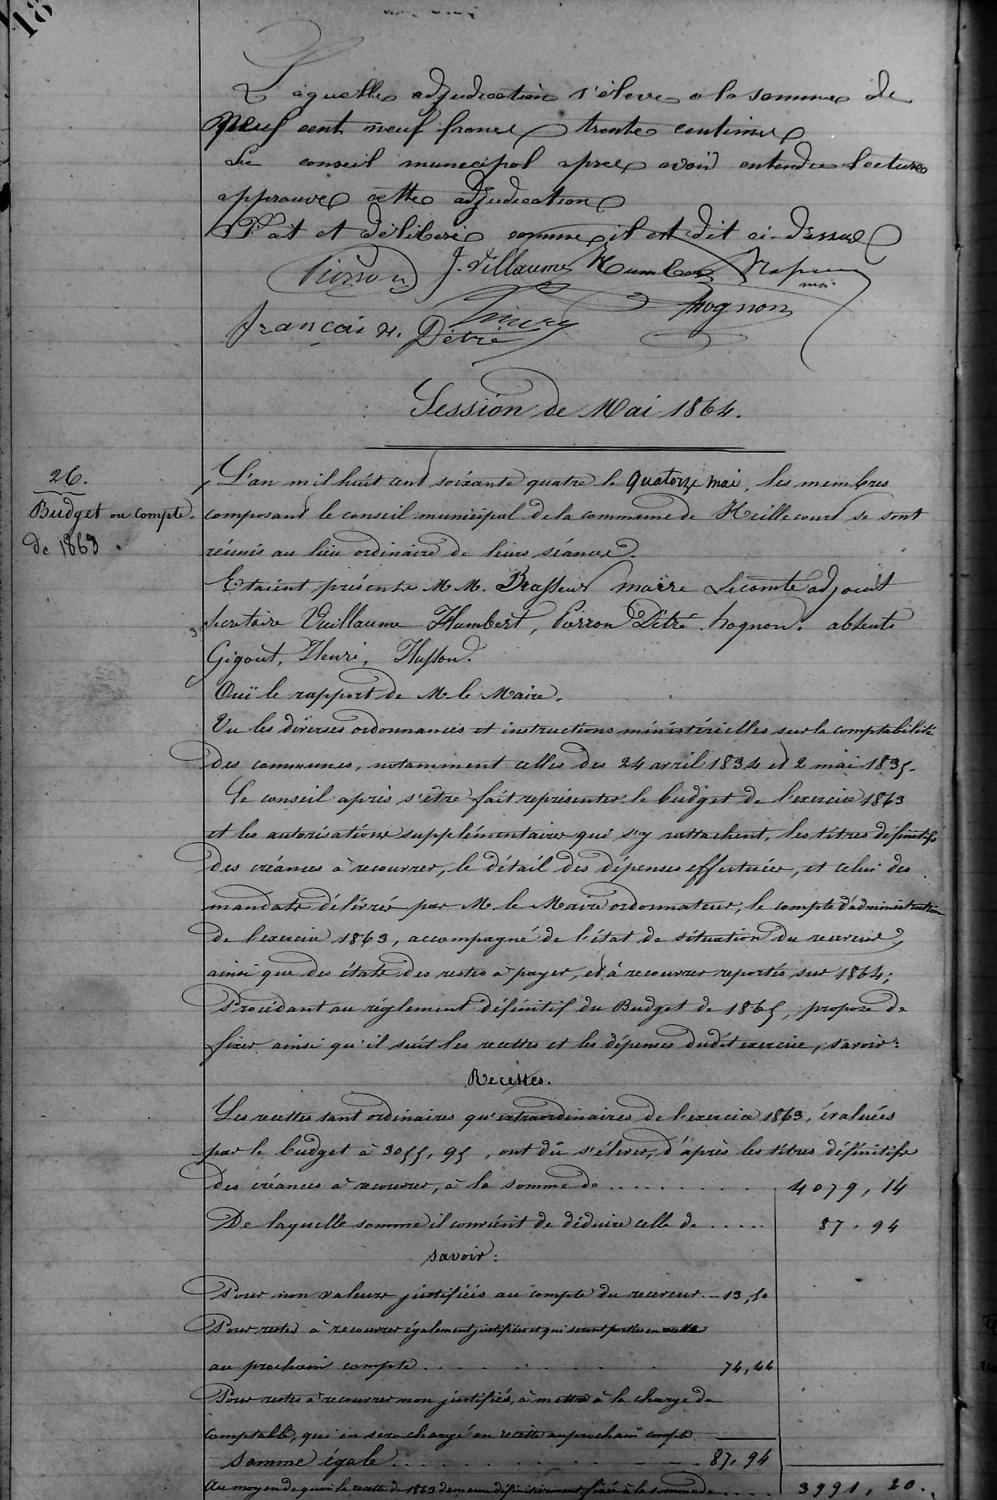 18
Laquelle adjudication s'élève a la somme de
Neuf cent neuf francs trente centimes
Le conseil municipal après avoir entendu lecture
approuve cette adjudication
Fait et délibéré comme il est dit ci-dessus
Pierron J. Villaume Humbert
François H. Détré hognon
Session de Mai 1864.
26.
Budget ou compte
de 1863.
L'an mil huit cent soixante quatre le quatorze mai, les membres
composant le conseil municipal de la commune de Heillecourt se sont
réunis au lieu ordinaire de leurs séances.
Etaient présents M M. Brasseur maire Lecomte adjoint
secretaire Vuillaume Humbert, Pierron Détré hognon. absents
Gigout, Henri, Husson.
Ouï le rapport de M. le Maire.
Vu les diverses ordonnances et instructions ministérielles sur la comptabilité
des communes, notamment celles des 24 avril 1834 et 2 mai 1835.
Le conseil après s'être fait représenter le budget de l'exercice 1863
et les autorisations supplémentaires qui s'y rattachent, les titres définitifs
des créances à recouvrer, le détail des dépenses effectuées, et celui des
mandats délivrés par M. le Maire ordonnateur, le compte d'administration
de l'exercice 1863, accompagné de l'état de situation du receveur,
ainsi que des états des restes à payer, et à recouvrer reportés sur 1864;
Procédant au réglement définitif du Budget de 1865, propose de
fixer ainsi qu'il suit les recettes et les dépenses dudit exercice, savoir:
Recettes.
Les recettes tant ordinaires qu'extraordinaires de l'exercice 1863, évaluées
par le budget à 3055,95, ont dû s'élever, d'après les titres définitifs
des créances à recouvrer, à la somme de ........ 4079,14
De laquelle somme il convient de déduire celle de ..... 87.94
savoir:
Pour non valeurs justifiées au compte du receveur — 13,50
Pour restes à recouvrer également justifiés et qui seront portés en recette
au prochain compte ........ 74,44
Pour restes à recouvrer non justifiés, à mettre à la charge du
comptable, qui en sera chargé en recette au prochain compte ———
Somme égale ........ 87.94
Au moyen de quoi la recette de 1863 demeure définitivement fixée à la somme de .... 3991,20.